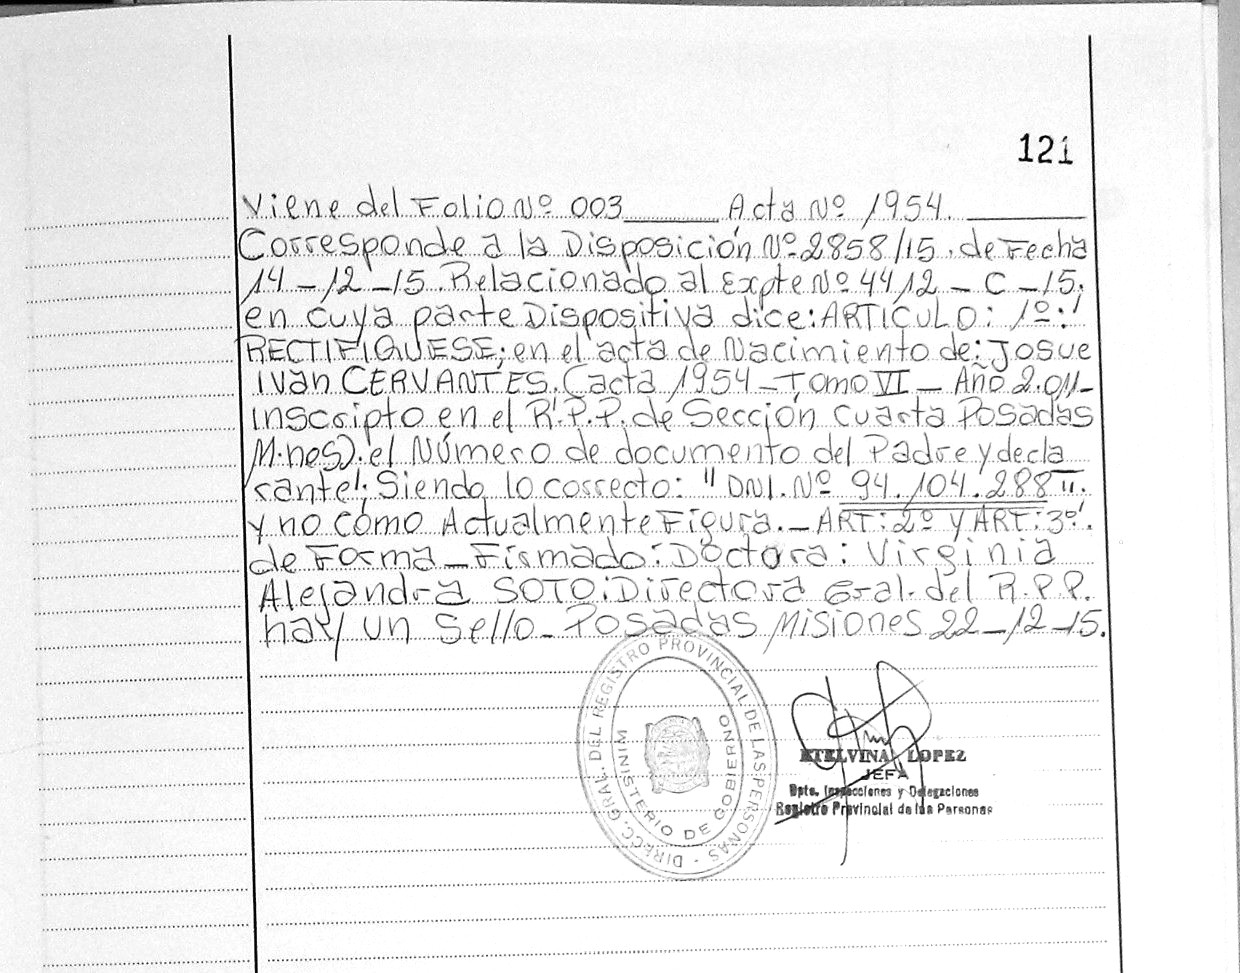 121
Viene del Folio Nº 003 ______ Acta Nº 1954. ______
Corresponde a la Disposición Nº 2858/15. de Fecha
14-12-15. Relacionado al Expte Nº 4412-C-15.
en cuya parte Dispositiva dice: ARTICULO: 1º:
RECTIFIQUESE; en el acta de Nacimiento de: Josue
Ivan CERVANTES. (acta 1954 - Tomo VI - Año 2.011-
inscripto en el R.P.P. de Sección Cuarta Posadas
M.nes). el Número de documento del Padre y decla
rante; Siendo lo correcto: "DNI. Nº 94.104.288".
y no como Actualmente Figura. - ART: 2º y ART: 3º.
de Forma - Firmado: Doctora: Virginia
Alejandra SOTO: Directora Gral. del R.P.P.
hay un Sello - Posadas Misiones 22-12-15.
DIRECC. GRAL. DEL REGISTRO PROVINCIAL DE LAS PERSONAS -
MINISTERIO DE GOBIERNO
ETELVINA LOPEZ
JEFA
Dpto. Inspecciones y Delegaciones
Registro Provincial de las Personas